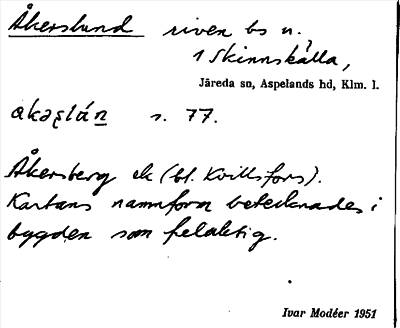 Åkerslund riven bs n.
1 Skinnskälla,
Järeda sn, Aspelands hd, Klm. l.
s. 77.
Åkersberg ek (bl. Kvillsfors).
Kartans namnform betecknades i
bygden som felaktig.
Ivar Modéer 1951